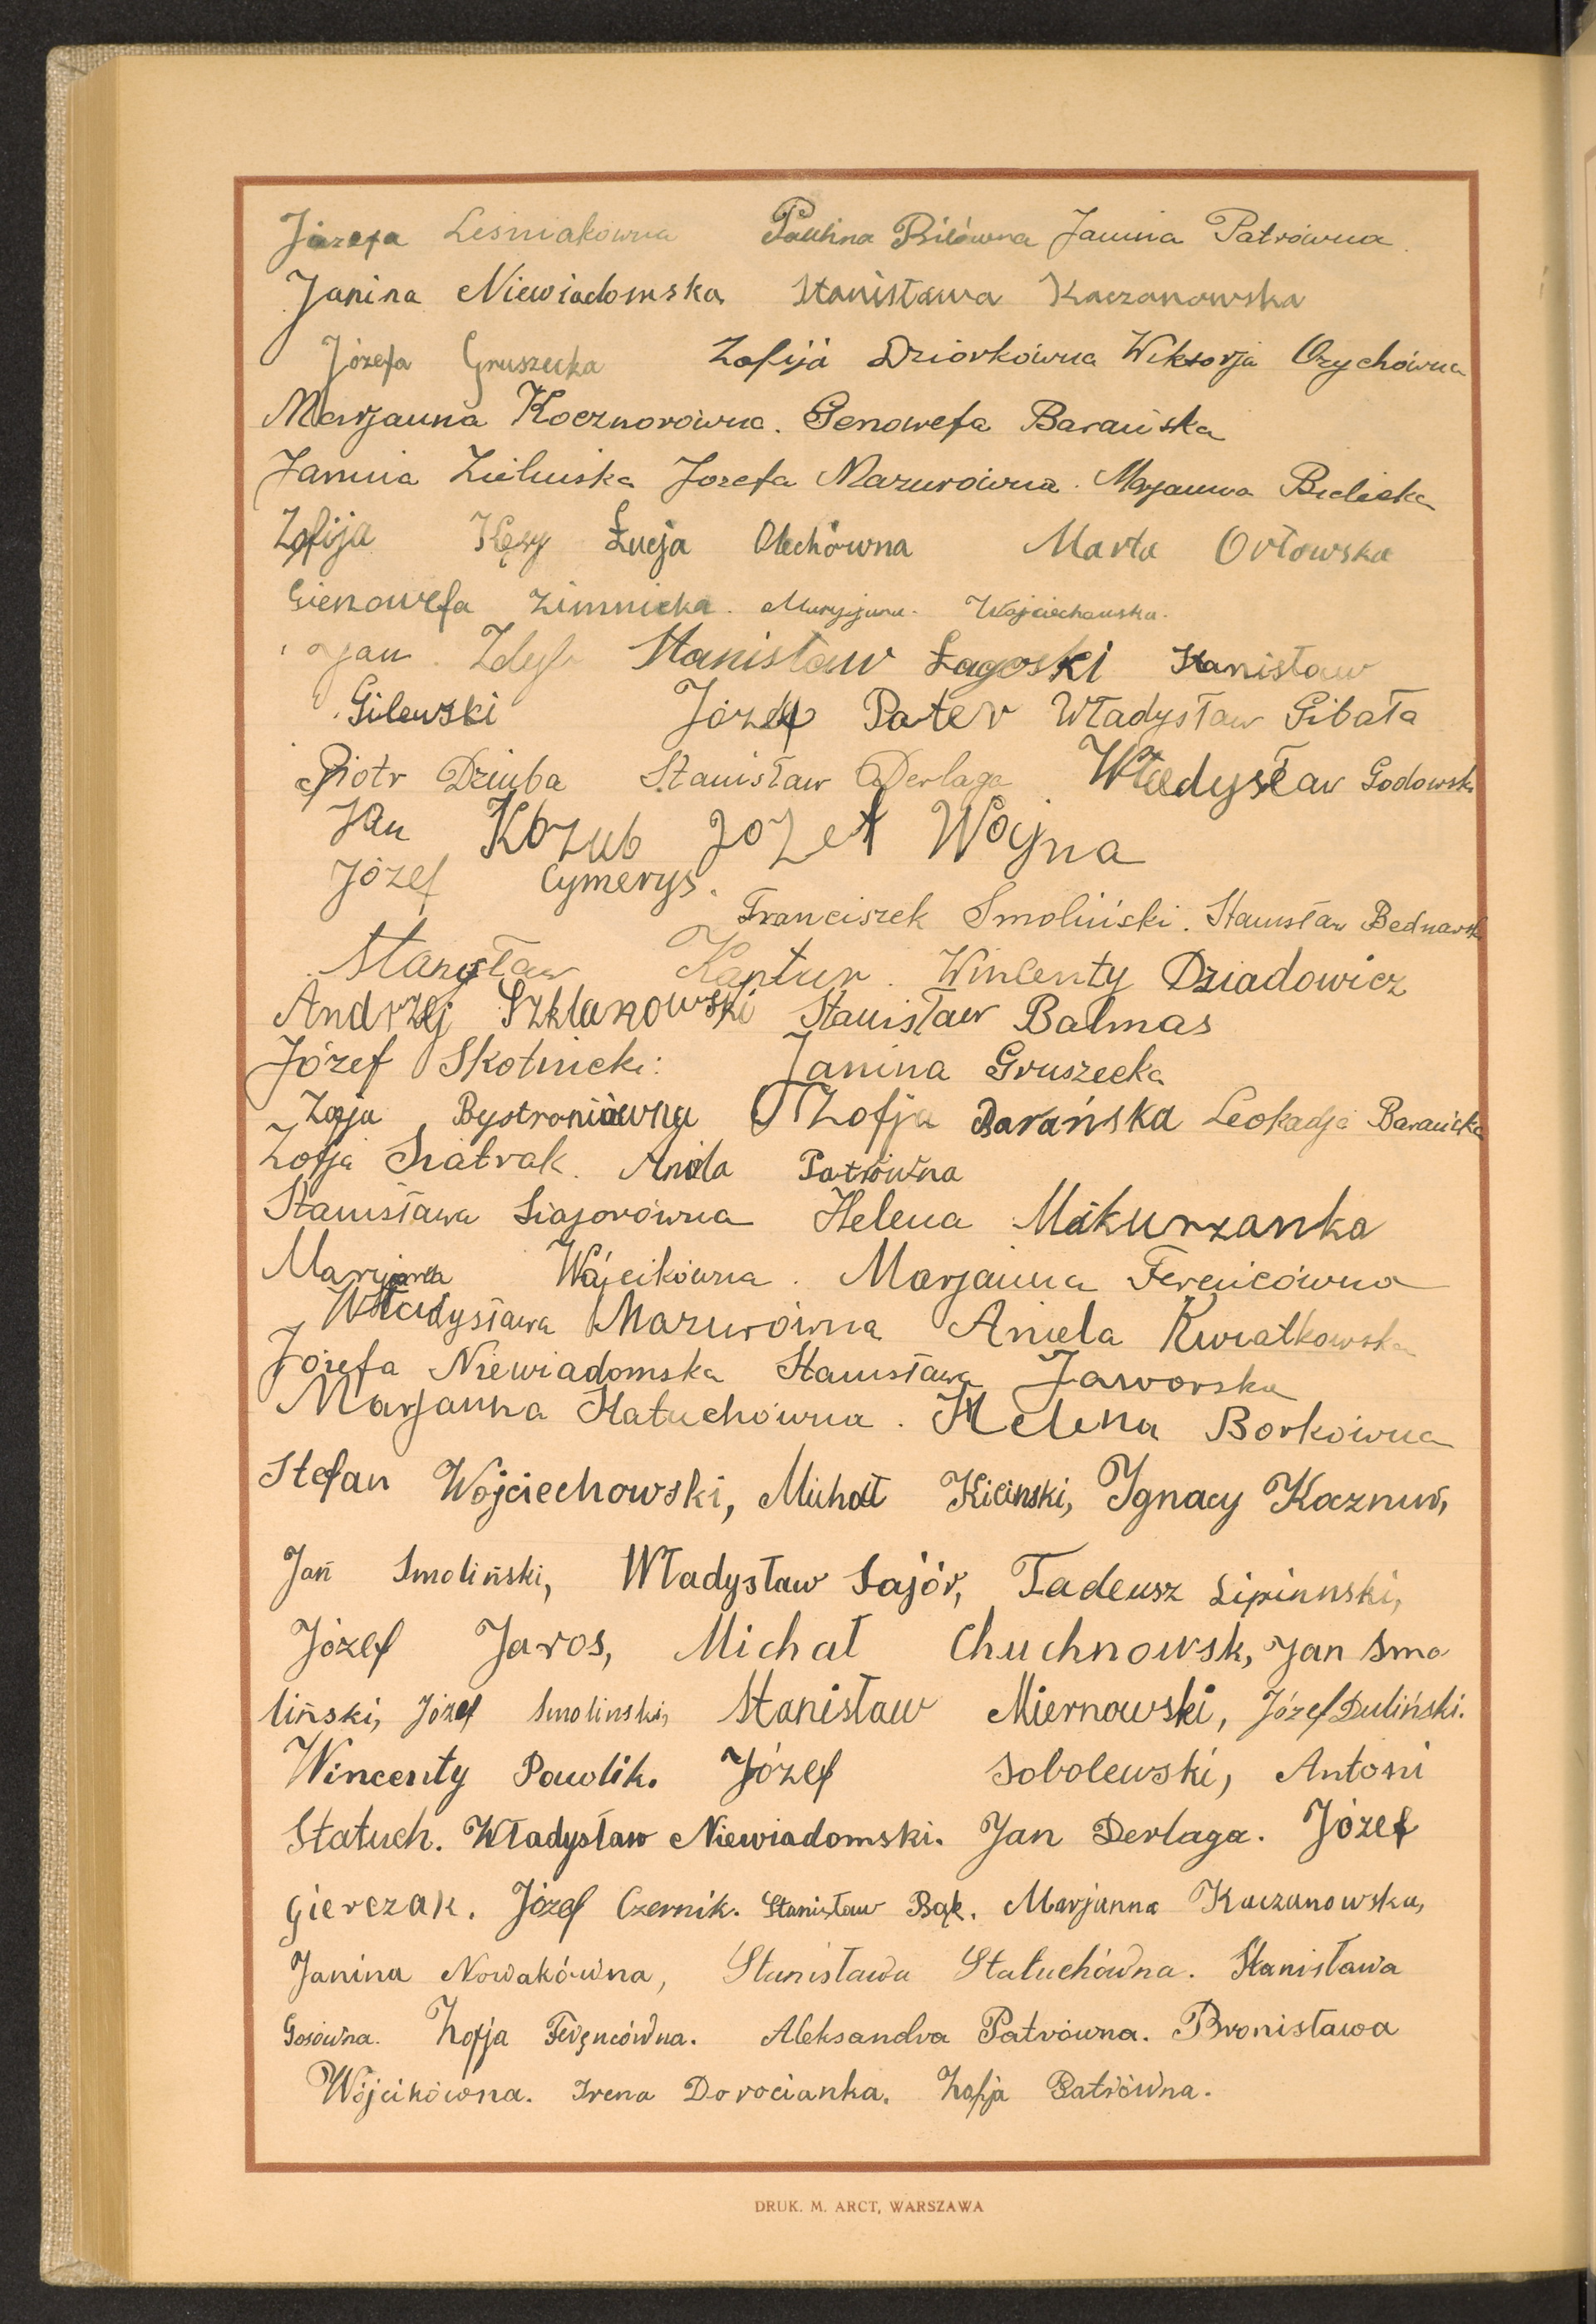 Józefa Leśniakówna Paulina Bilówna Janina Patrówna
Janina Niewiadomska Stanisława Kaczanowska
Józefa Gruszecka Zofija Dziorkówna Wiktorja Orychówna
Marjanna Kocznorówna. Genowefa Barańska
Janina Zielińska Józefa Mazurówna. Marjanna Bielicka
Zofija Kęsy Łucja Olechówna Marta Orłowska
Gienowefa Zimnicka. Wojciechowska.
Jan Zdyb Stanisław Łagoski Stanisław
Gilewski Józef Pater Władysław Gibała
Piotr Dziuba Stanisław Derlaga Władysław Godowski
Jan Kozub Jozef Wojna
Józef Cymerys.
Franciszek Smoliński. Stanisław Bednarski
Stanysław Kaptur. Wincenty Dziadowicz
Andrzej Szklanowski Stanisław Balmas
Józef Skotnicki: Janina Gruszecka
Zofja Bystroniówna Zofja Barańska Leokadja Barańska
Zofja Siatrak. Aniela Patrówna
Stanisława Siajorówna Helena Makurzanka
Maryjanna Wójcikówna. Marjanna Ferencówna
Władysława Mazurówna Aniela Kwiatkowska
Józefa Niewiadomska Stanisława Jaworska
Marjanna Statuchówna. Helena Borkówna
Stefan Wojciechowski, Michał Kicinski, Ignacy Kocznur,
Jań Smoliński, Władysław Sajór, Tadeusz Lipinnski,
Józef Jaros, Michał Chuchnowsk, Jan Smo
liński, Józef Smolinski, Stanisław Miernowski, Józef Duliński.
Wincenty Pawlik. Józef Sobolewski, Antoni
Statuch. Władysław Niewiadomski. Jan Derlaga. Józef
Gierczak. Józef Czernik. Stanisław Bąk. Marjanna Kaczanowska,
Janina Nowakówna, Stanisława Statuchówna. Stanisława
Gosówna. Zofja Feręncówna. Aleksandra Patrówna. Bronisława
Wójcikówna. Irena Dorocianka. Zofja Patrówna.
DRUK. M. ARCT, WARSZAWA